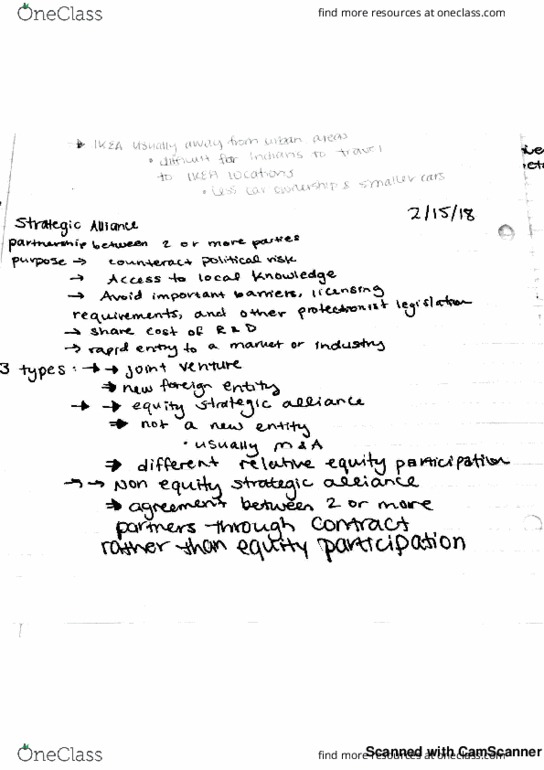 OneClass
find more resources at oneclass.com
→ IKEA usually away from urban areas
• difficult for indians to travel
to IKEA locations
• less car ownership & smaller cars
2/15/18
Strategic Alliance
partnership between 2 or more parties
purpose → counteract political risk
→ Access to local knowledge
→ Avoid important barriers, licensing
requirements, and other protectionist legislation
→ share cost of R&D
→ rapid entry to a market or industry
3 types: → → joint venture
⇒ new foreign entity
→ → equity strategic alliance
⇒ not a new entity
• usually M&A
⇒ different relative equity participation
→ → Non equity strategic alliance
⇒ agreement between 2 or more
partners through contract
rather than equity participation
OneClass
find more resources at oneclass.com
Scanned with CamScanner